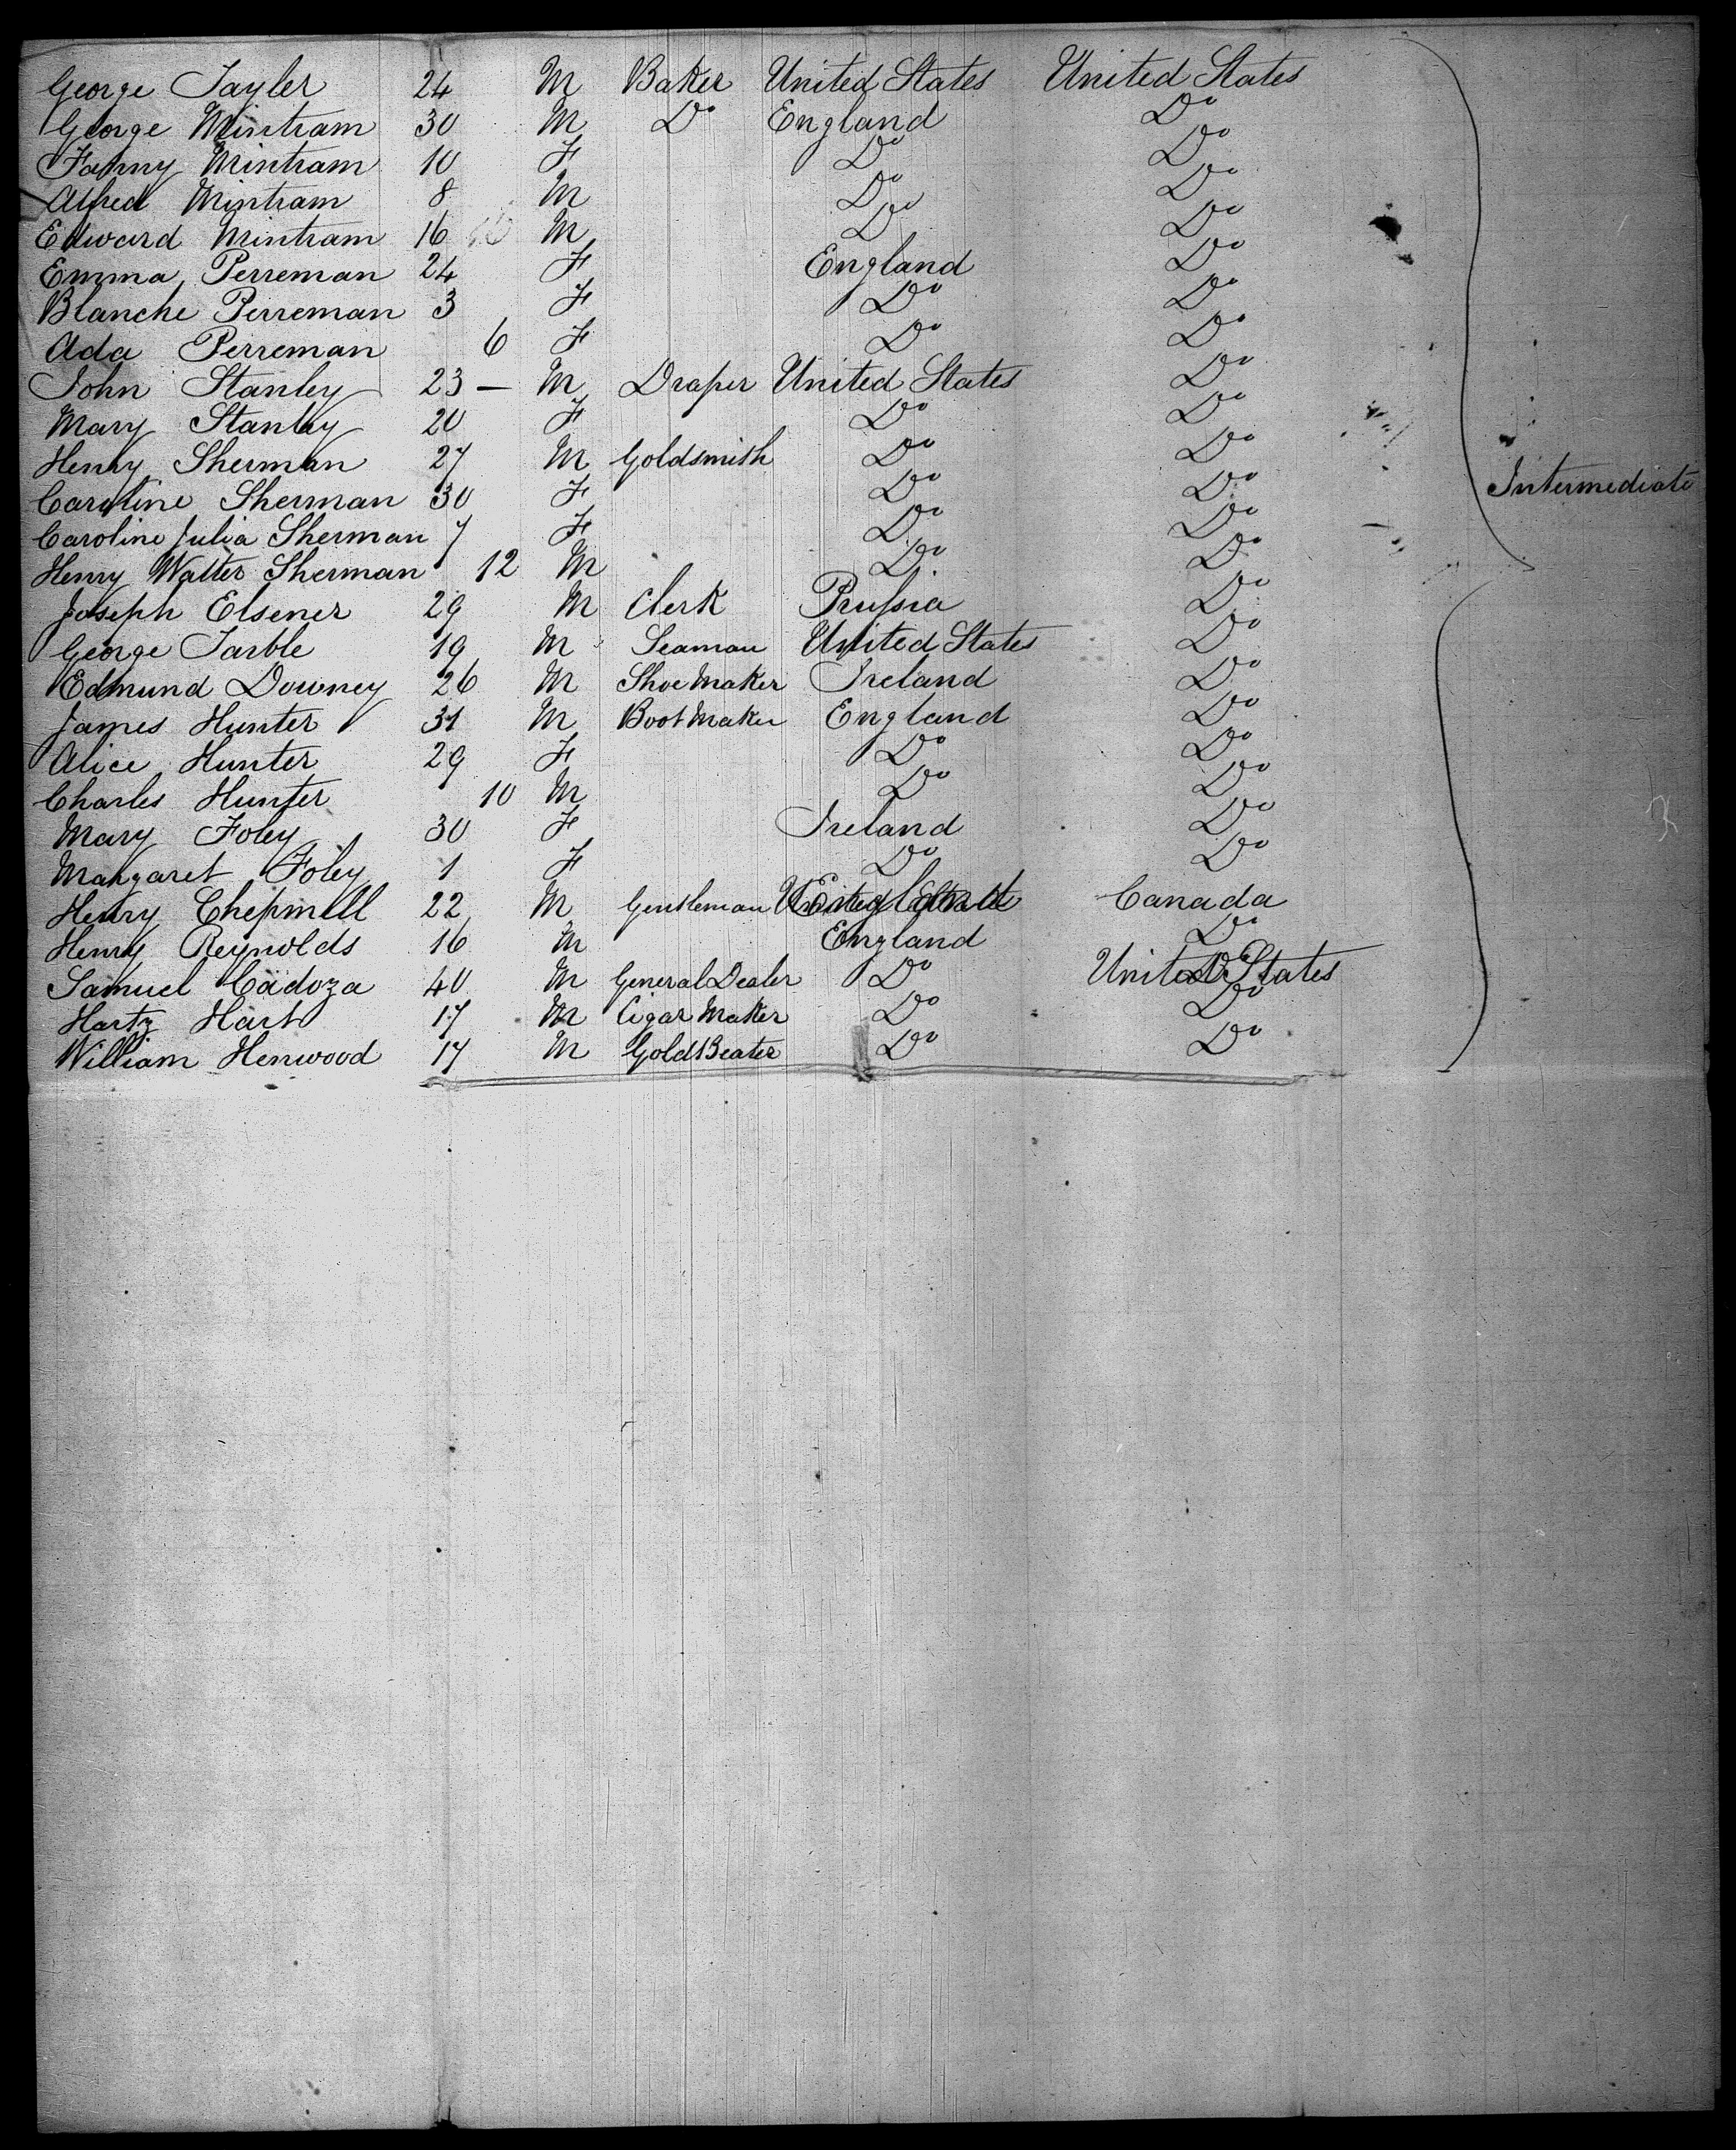 George Tayler 24 M Baker United States United States
George Mintram 30 M Do England Do
Fanny Mintram 10 F Do Do
Alfred Mintram 8 M Do Do
Edward Mintram 16 M Do Do
Emma Perreman 24 F England Do
Blanche Perreman 3 F Do Do
Ada Perreman 6 F Do Do
John Stanley 23 — M Draper United States Do
Mary Stanley 20 F Do Do
Henry Sherman 27 M Goldsmith Do Do
Intermediate
Caroline Sherman 30 F Do Do
Caroline Julia Sherman 7 F Do Do
Henry Walter Sherman 12 M Do Do
Joseph Elsener 29 M Clerk Prussia Do
George Tarble 19 M Seaman United States Do
Edmund Downey 26 M Shoe Maker Ireland Do
James Hunter 31 M Boot Maker England Do
Alice Hunter 29 F Do Do
Charles Hunter 10 M Do Do
Mary Foley 30 F Ireland Do
Margaret Foley 1 F Do Do
Henry Chepmell 22 M Gentleman Canada
Henry Reynolds 16 M England Do
Samuel Cadoza 40 M General Dealer Do United States
Hartz Hart 17 M Cigar Maker Do Do
William Henwood 17 M Gold Beater Do Do